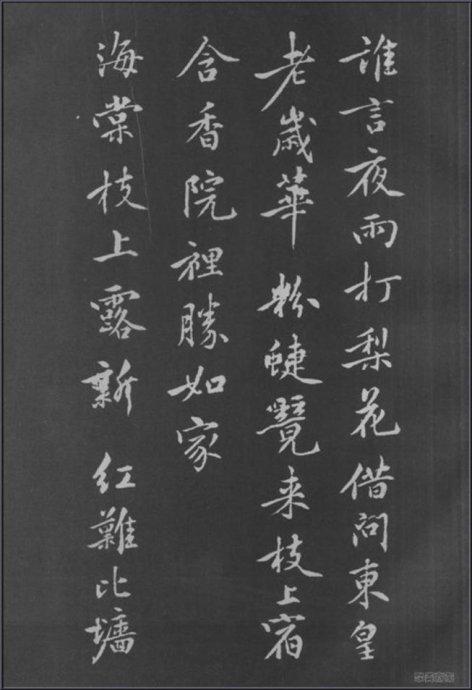 誰言夜雨打梨花借問東皇
老歲華 粉蜨覽来枝上宿
含香院裡勝如家
海棠枝上露新 红難比墻